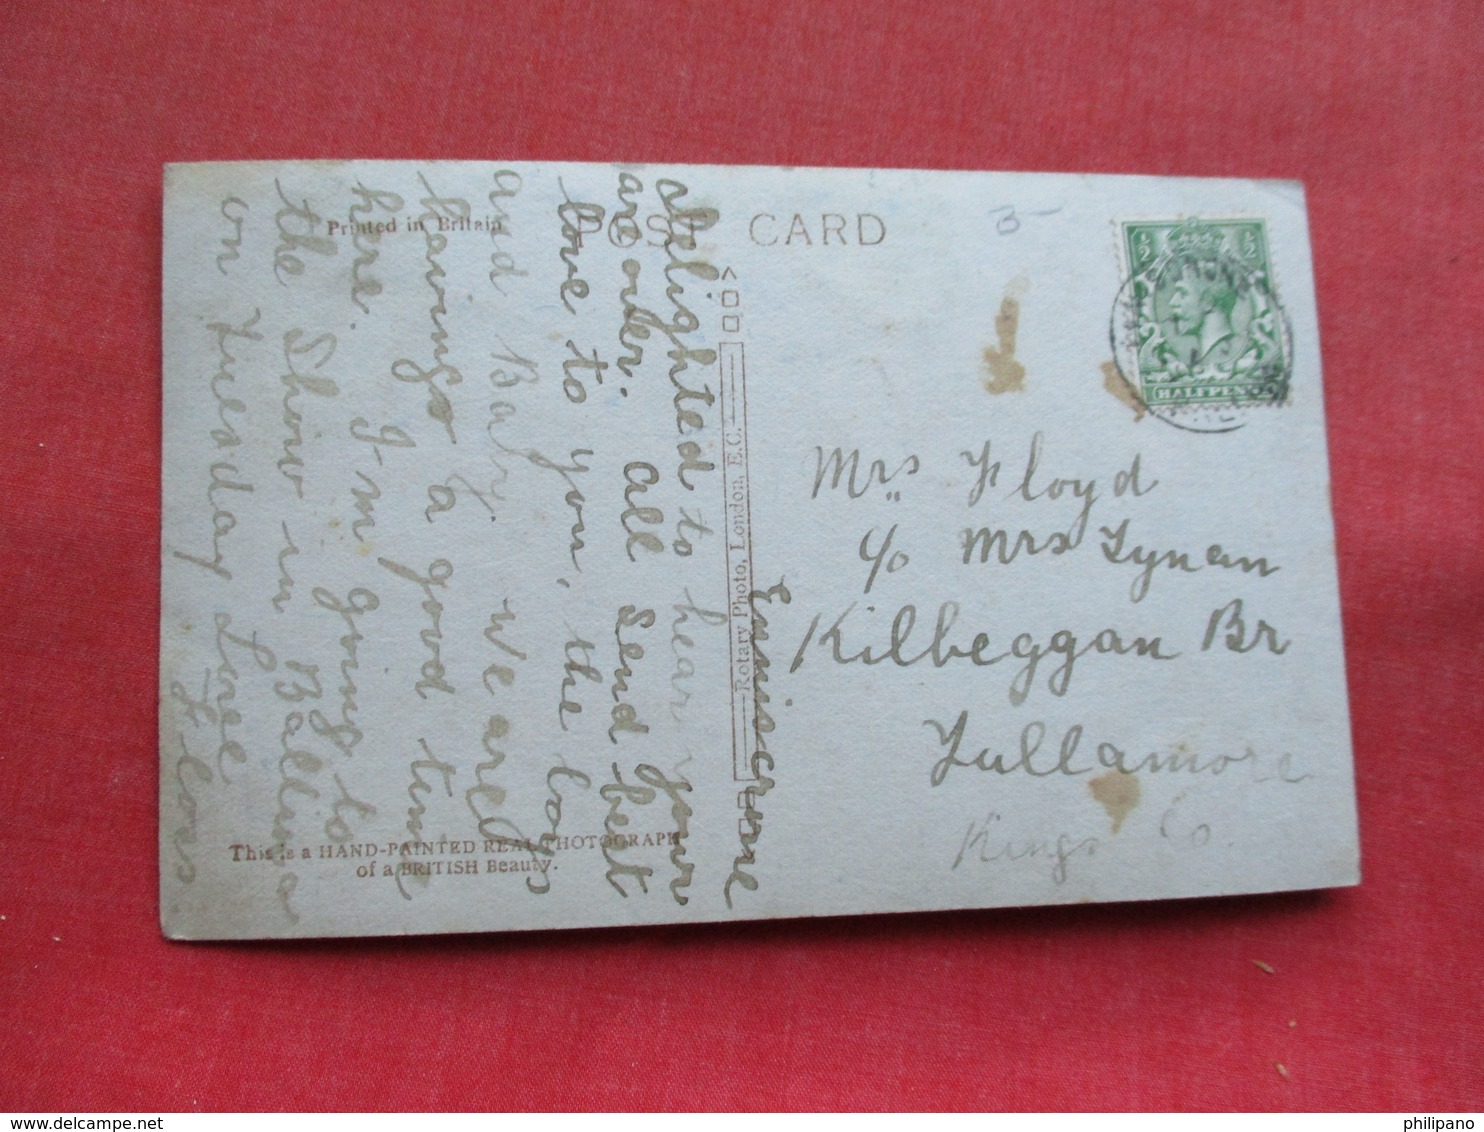 Printed in Britain
POST CARD
3-
½ ½
HALFPENNY
Enniscrone
delighted to hear your
are onler. all send best
love to you, the boys
and Baby. We are
having a good time
here. I'm going to
the Show in Ballina
on Tuesday Love
Flors
Rotary Photo, London, E.C.
This is a HAND-PAINTED REAL PHOTOGRAPH
of a BRITISH Beauty.
Mrs Floyd
c/o Mrs Tynan
Kilbeggan Br
Tullamore
Kings Co.
philipano